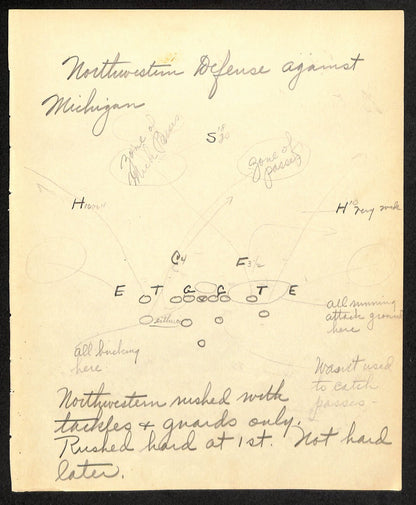 Northwestern Defense against
Michigan
S 18 20
Zone of
Much Passes
Zone of
passes
H 10 or 11
H 10 very weak
C 4
F 3 1/2
E T G G T E
either
all running
attack ground
here
all bucking
here
Wasn't used
to catch
passes -
Northwestern rushed with
tackles & guards only.
Rushed hard at 1st. Not hard
later.